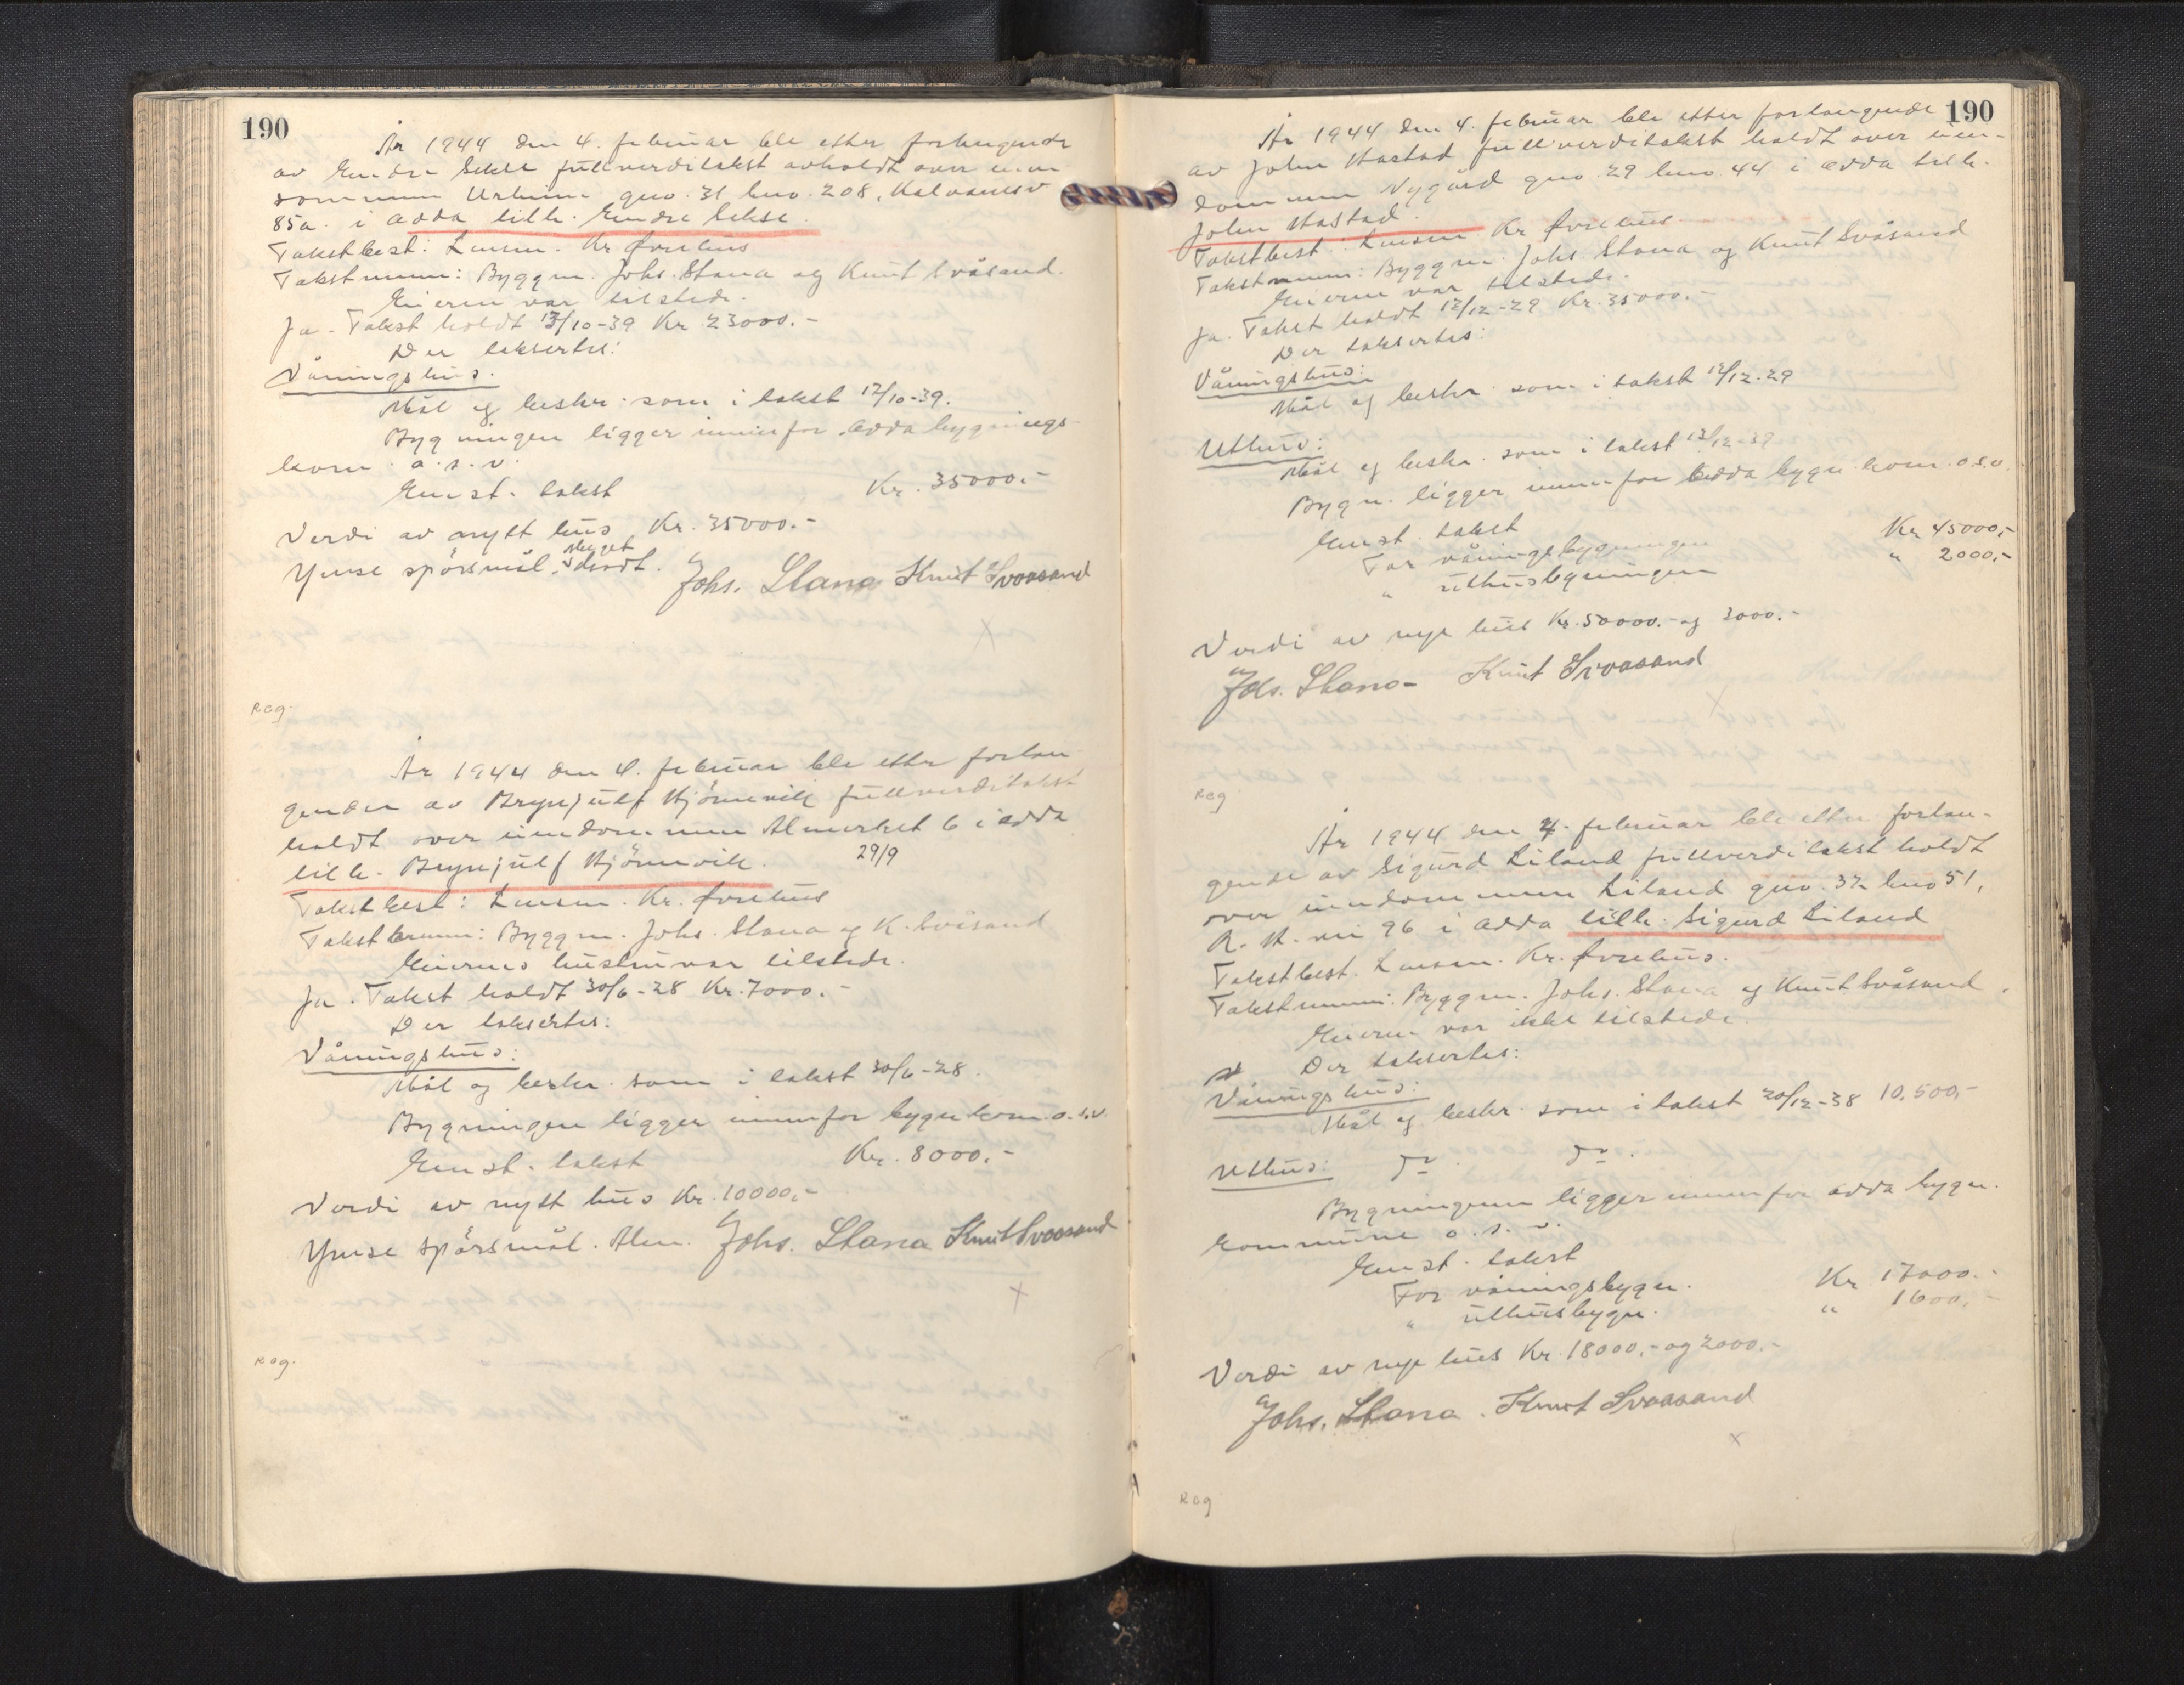 190
År 1944 den 4. februar ble etter forlangende
av Endre Sekse fullverditakst avholdt over eien-
dommen Urheim gno. 31 bno. 208, Kalvanesv
85a. i Odda tilh. Endre Sekse.
Takstbest: Lensm. Kr Øvrehus
Takstmenn: Byggm. Johs. Stana og Knut Svåsand.
Eieren var tilstede.
Ja. Takst holdt 13/10-39 Kr 23000.-
Der taksertes:
Våningshus.
Mål og beskr. som i takst 12/10-39.
Bygningen ligger innenfor Odda bygnings-
kom. o.s.v.
Enst. takst Kr. 35000.-
Verdi av nytt hus Kr. 35000.-
Ymse spörsmål. Meget solidt.
Johs. Stana Knut Svaasand
Reg.
År 1944 den 4. februar ble etter forlan-
gende av Brynjulf Mjönevik fullverditakst
holdt over eiendommen Almerket 6 i Odda
tilh. Brynjulf Mjönevik. 29/9
Takstbest: Lensm. Kr. Øvrehus
Takstmenn: Byggm. Johs. Stana og K. Svåsand
Eierens hustru var tilstede.
Ja. Takst holdt 30/6-28 Kr. 7000.-
Der taksertes:
Våningshus:
Mål og beskr. som i takst 30/6-28.
Bygningen ligger innenfor bygn kom. o.s.v.
Enst. takst Kr. 8000.-
Verdi av nytt hus Kr. 10000,-
Ymse spörsmål. Alm. Johs. Stana Knut Svaasand
Reg.
190
År 1944 den 4. februar ble etter forlangende
av John Mastad fullverditakst holdt over eien-
dommen Nygård gno. 29 bno 44 i Odda tilh.
John Mastad.
Takstbest: Lensm. Kr Øvrehus.
Takstmenn: Byggm. Johs. Stana og Knut Svåsand
Eieren var tilstede.
Ja. Takst holdt 12/12-29 Kr. 35000.-
Der taksertes:
Våningshus:
Mål og beskr. som i takst 12/12-29
Uthus:
Mål og beskr. som i takst 13/12-39
Bygn. ligger innenfor Odda bygn. kom. o.s.v.
Enst. takst
For våningsbygningen Kr 45000,-
" uthusbygningen " 2000,-
Verdi av nye hus Kr. 50000.- og 3000.-
Johs. Stana- Knut Svaasand
Reg
År 1944 den 4. februar ble etter forlan-
gende av Sigurd Liland fullverditakst holdt
over eiendommen Liland gno. 32 bno 51,
R. H. vei 96 i Odda tilh. Sigurd Liland
Takstbest. Lensm. Kr. Øvrehus.
Takstmenn: Byggm. Johs. Stana og Knut Svåsand.
Eieren var ikke tilstede.
Der taksertes:
Våningshus:
Mål og beskr. som i takst 20/12-38 10.500,-
Uthus: do. do.
Bygningene ligger innenfor Odda bygn.
kommune o.s.v.
Enst. takst
For våningsbygn. Kr 17000.-
" uthusbygn. " 1600,-
Verdi av nye hus Kr. 18000,- og 2000.-
Johs. Stana. Knut Svaasand
Reg